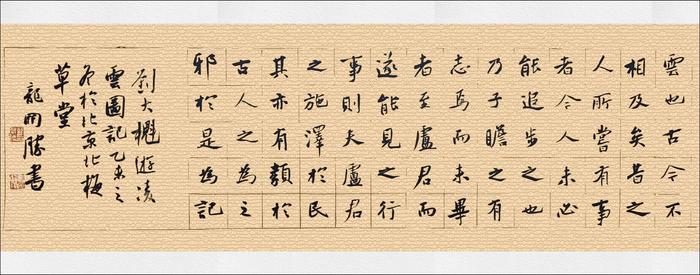 雲也古今不
相及矣昔之
人所嘗有事
者今人未必
能追步之也
乃子瞻之有
志焉而未畢
者至盧君而
遂能見之行
事則夫盧君
之施澤於民
其亦有類於
古人之為之
邪於是為記
劉大櫆遊凌
雲圖記乙未之
冬於北京北梅
草堂
龍開勝書